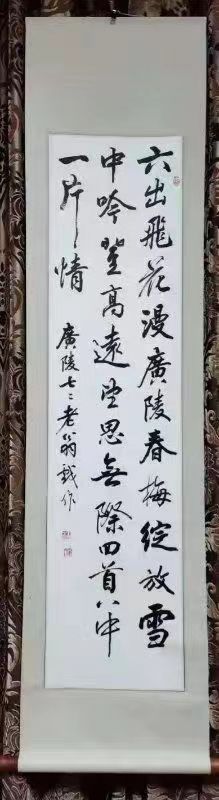 六出飛花漫廣陵春梅綻放雪
中吟登高遠望思無際回首八中
一片情
廣陵七二老翁戲作